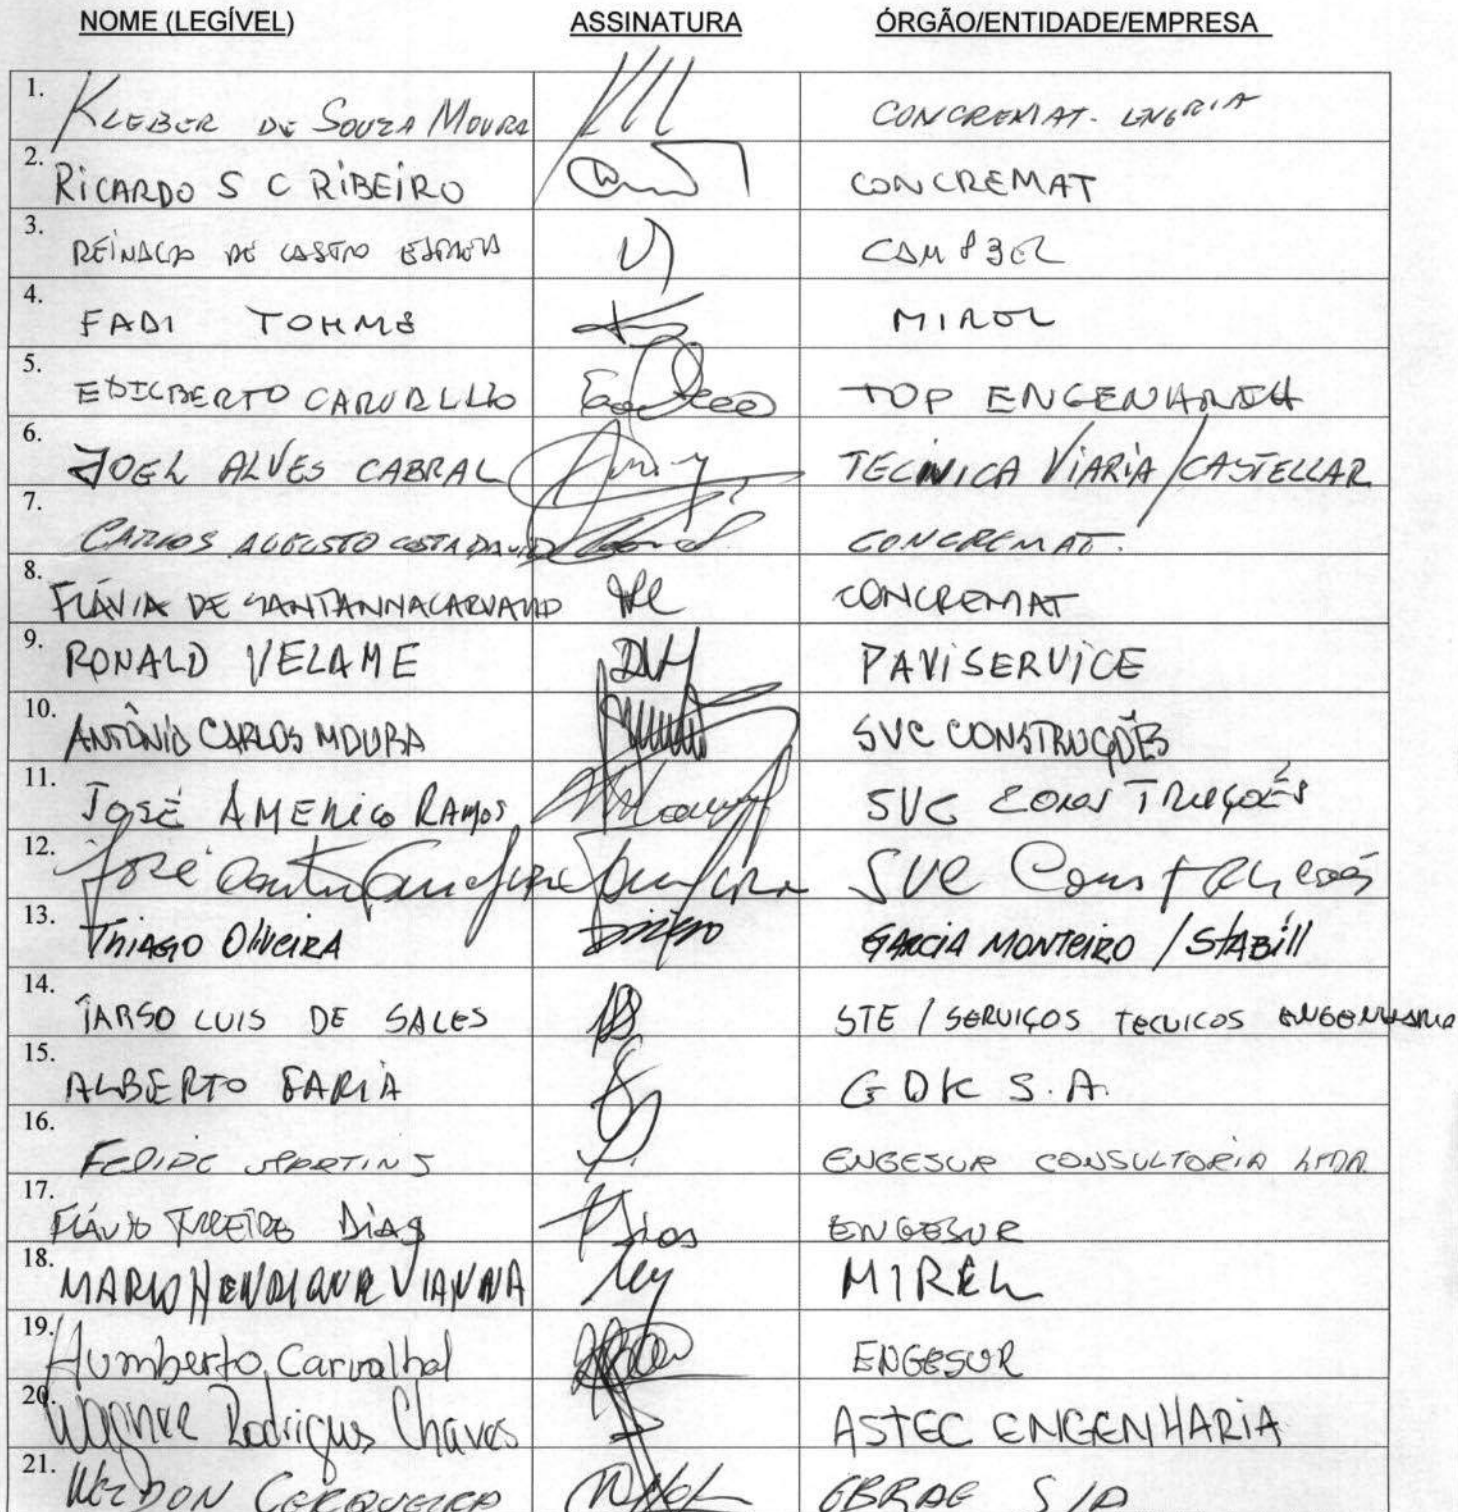 NOME (LEGÍVEL) ASSINATURA ÓRGÃO/ENTIDADE/EMPRESA
1. KLEBER DE SOUZA MOURA CONCREMAT
2. RICARDO S C RIBEIRO CONCREMAT
3. DE CASTRO
4. FADI TOHME
5. EDILBERTO CARVALHO TOP ENGENHARIA
6. JOEL ALVES CABRAL TECNICA VIARIA/CASTELLAR
7. CARLOS AUGUSTO COSTA DAVID CONCREMAT.
8. FLÁVIA DE SANTANNA CARVALHO CONCREMAT
9. RONALD VELAME PAVISERVICE
10. ANTÔNIO CARLOS MOURA SVC CONSTRUÇÕES
11. JOSÉ AMERICO RAMOS SVC CONSTRUÇÕES
12. José SVC Construções
13. THIAGO OliveiRA GARCIA MONTEIRO / StABill
14. TARSO LUIS DE SALES STE / SERVIÇOS TECNICOS ENGENHARIA
15. ALBERTO FARIA GDK S.A.
16. FELIPE MARTINS ENGESUR CONSULTORIA LTDA
17. FLÁVIO DIAS ENGESUR
18. MARIO HENRIQUE VIANNA MIREL
19. Humberto Carvalhal ENGESUR
20. Wagner Rodrigues Chaves ASTEC ENGENHARIA
21. CERQUEIRA S/A